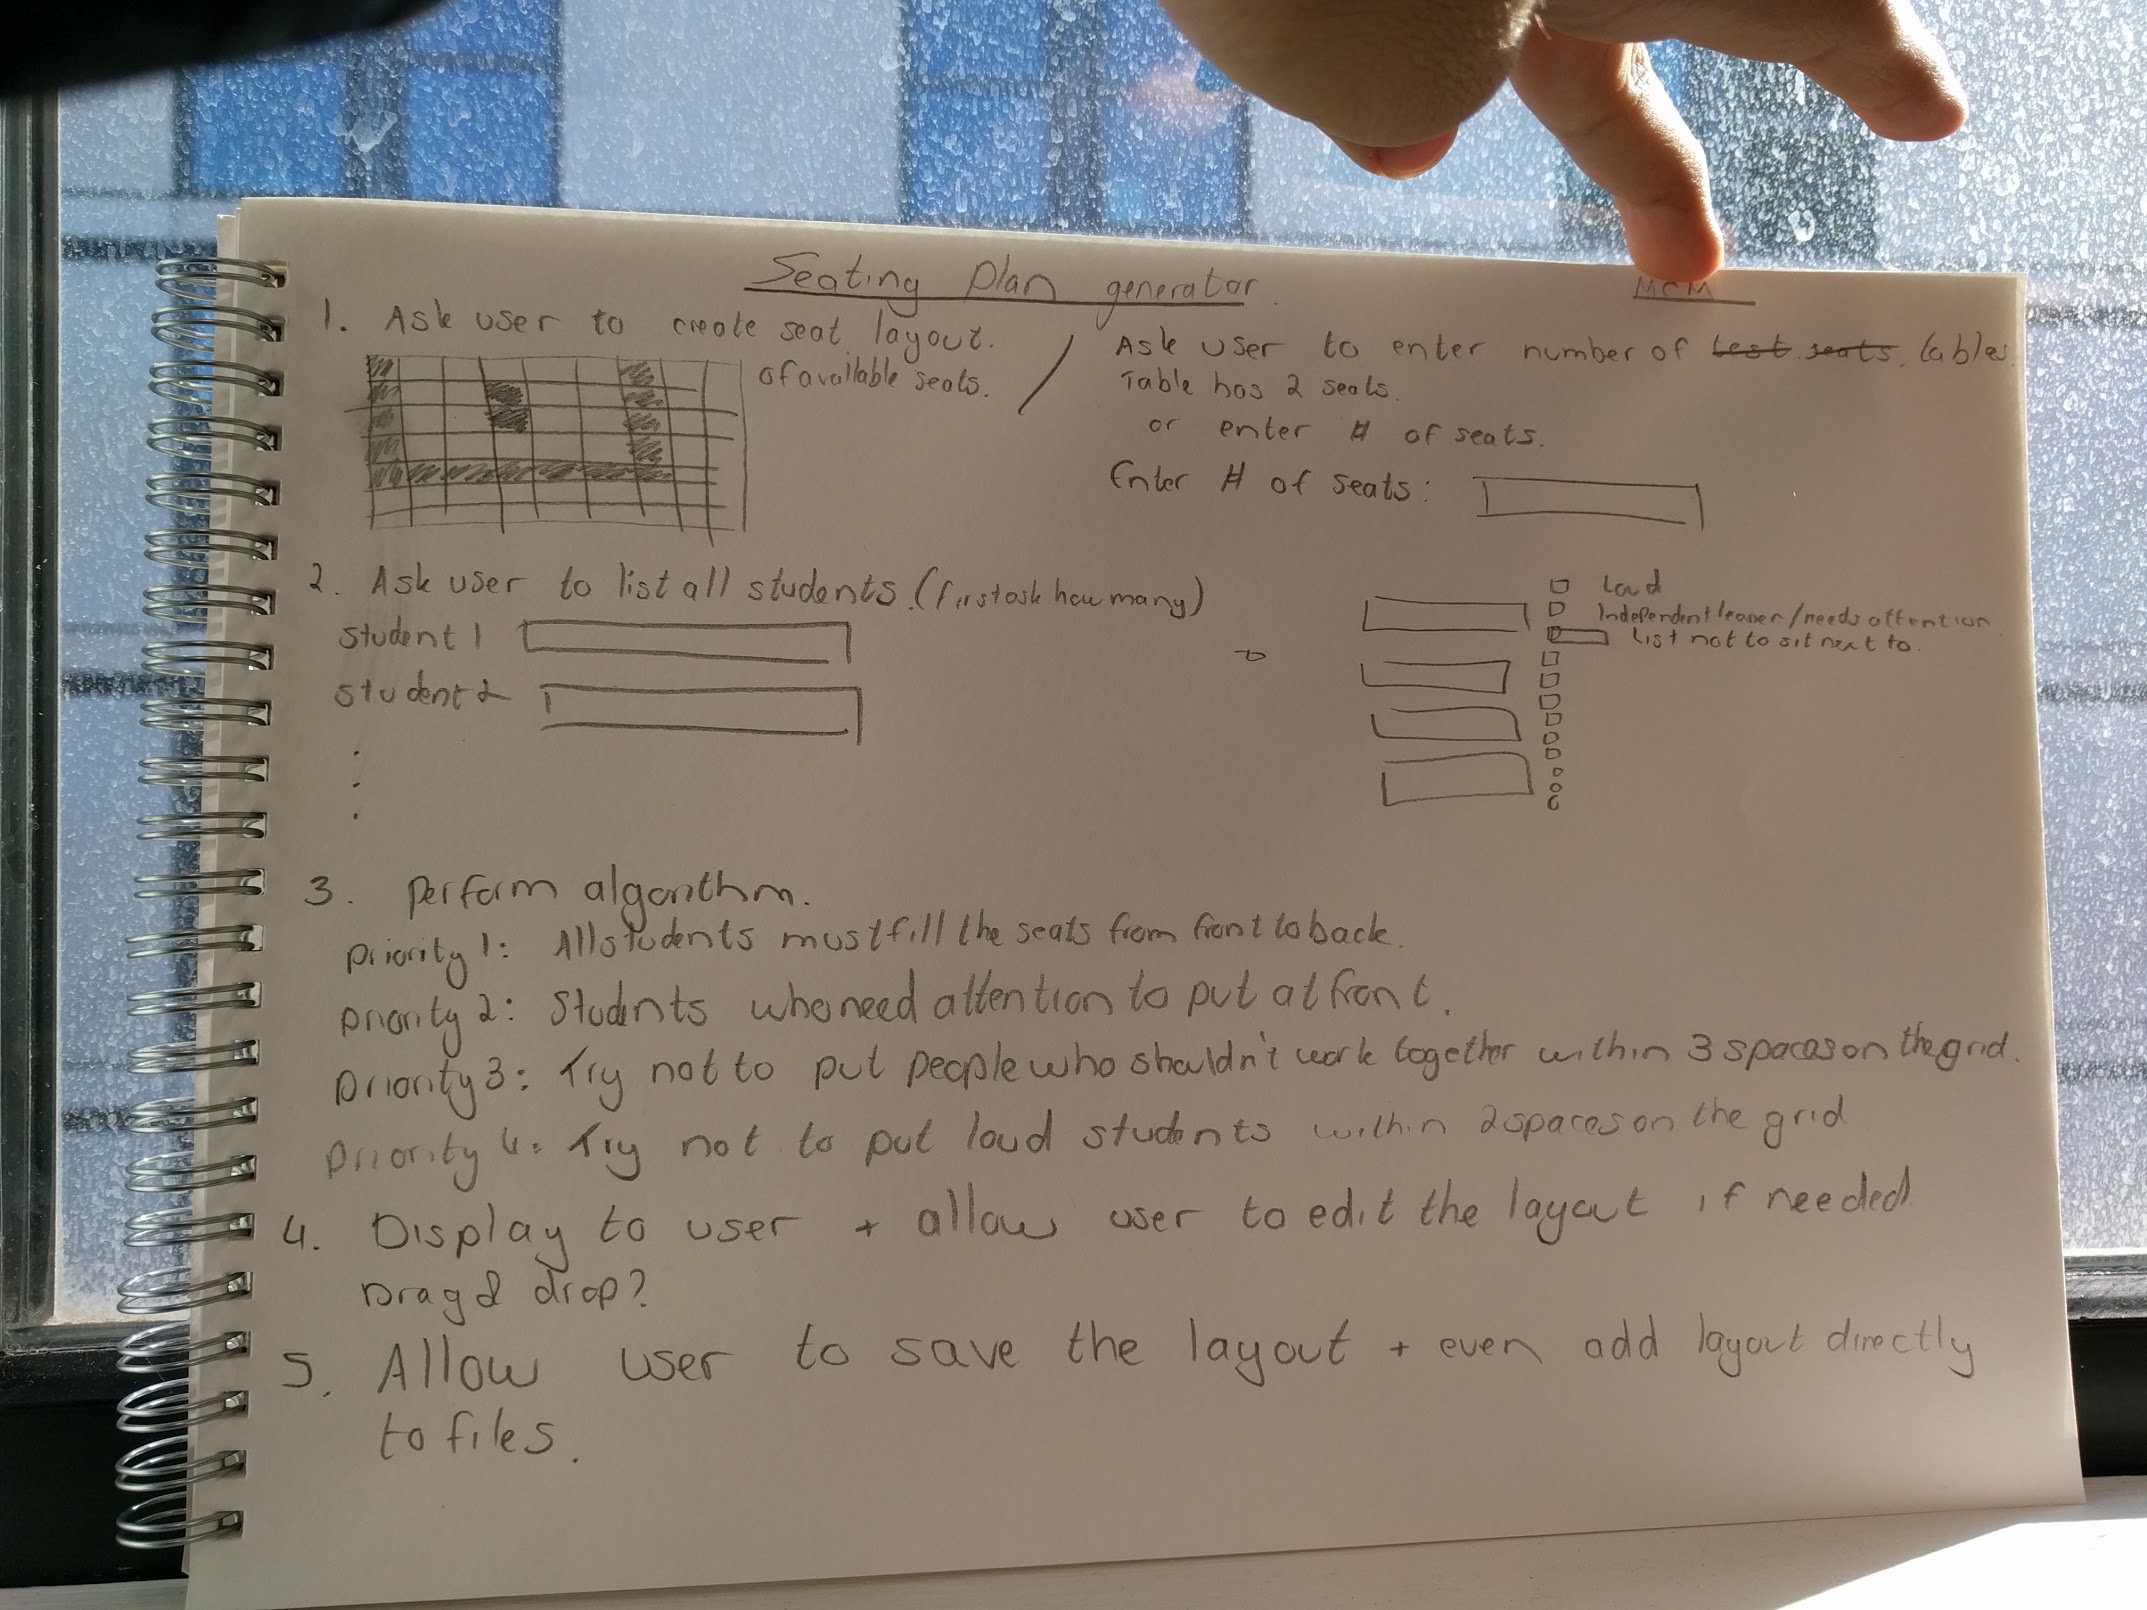 Seating plan generator.
MCM
1. Ask user to create seat layout.
of available seats.
/ Ask user to enter number of test seats. tables.
Table has 2 seats.
or enter # of seats.
Enter # of seats:
2. Ask user to list all students. (first ask how many)
student 1
student 2
Loud
Independent leaner/needs attention
List not to sit next to.
3. Perform algorithm.
Priority 1: All students must fill the seats from front to back.
Priority 2: Students who need attention to put at front.
Priority 3: Try not to put people who shouldn't work together within 3 spaces on the grid.
Priority 4: Try not to put loud students within 2 spaces on the grid
4. Display to user + allow user to edit the layout if needed.
Drag & drop?
5. Allow user to save the layout + even add layout directly
to files.